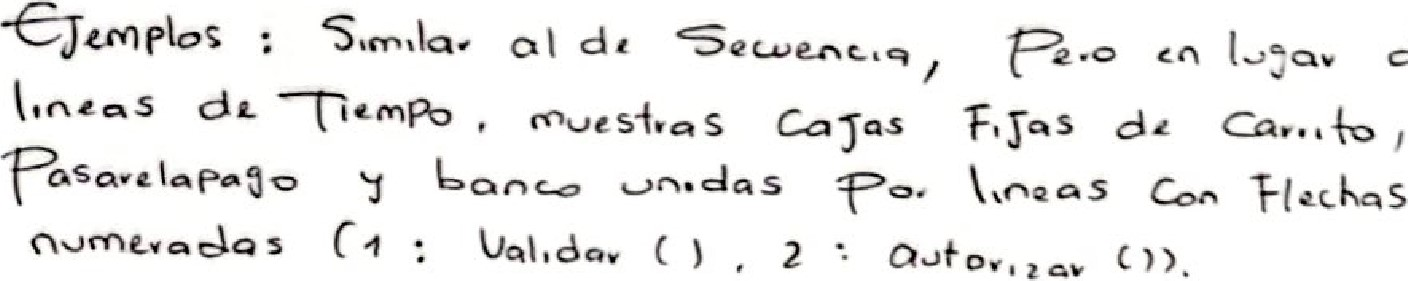 Ejemplos : Similar al de Secuencia, Pero en lugar
lineas de Tiempo, muestras Cajas Fijas de Carrito,
Pasarelapago y banco unidas Por lineas Con Flechas
numeradas (1 : Validar (), 2 : autorizar ()).